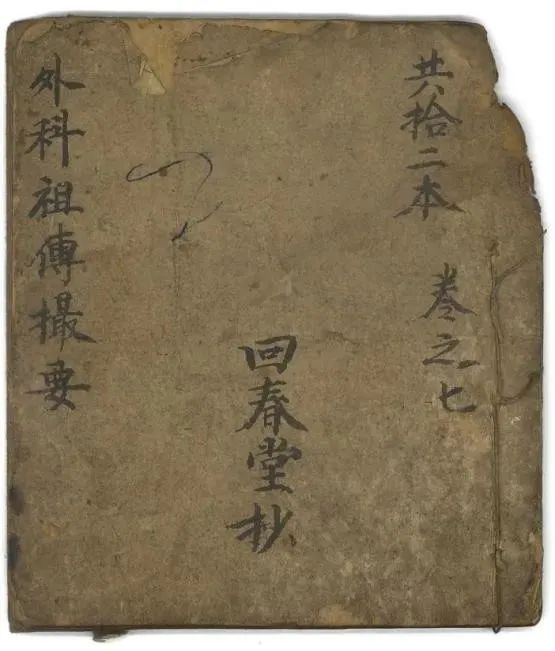 共拾二本
卷之七
回春堂抄
外科祖傳撮要